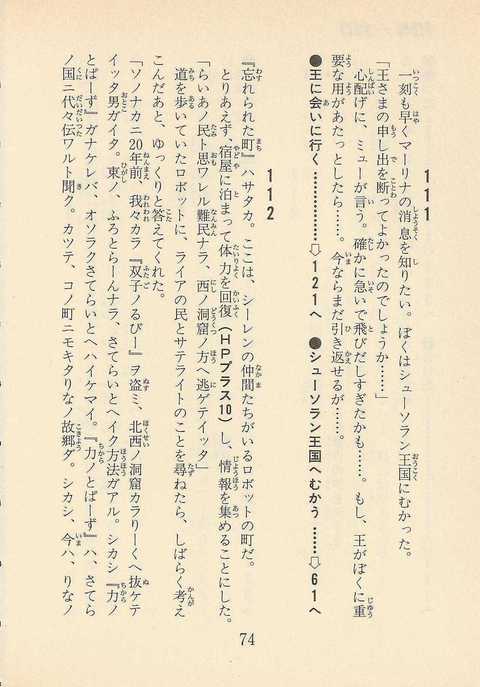 111
一刻も早くマーリナの消息を知りたい。ぼくはシューソラン王国にむかった。
「王さまの申し出を断ってよかったのでしょうか……」
心配げに、ミューが言う。確かに急いで飛びだしすぎたかも……。もし、王がぼくに重
要な用があたっとしたら……。今ならまだ引き返せるが……。
●王に会いに行く………………⇩121へ　●シューソラン王国へむかう……⇩61へ
112
『忘れられた町』ハサタカ。ここは、シーレンの仲間たちがいるロボットの町だ。
とりあえず、宿屋に泊まって体力を回復（HPプラス10）し、情報を集めることにした。
「らいあノ民ト思ワレル難民ナラ、西ノ洞窟ノ方へ逃ゲテイッタ」
道を歩いていたロボットに、ライアの民とサテライトのことを尋ねたら、しばらく考え
こんだあと、ゆっくりと答えてくれた。
「ソノナカニ20年前、我々カラ『双子ノるびー』ヲ盗ミ、北西ノ洞窟カラりーくへ抜ケテ
イッタ男ガイタ。東ノ、ふろとらーんナラ、さてらいとヘイク方法ガアル。シカシ『力ノ
とばーず』ガナケレバ、オソラクさてらいとヘハイケマイ。『力ノとばーず』ハ、さてら
ノ国ニ代々伝ワルト聞ク。カツテ、コノ町ニモキタりなノ故郷ダ。シカシ、今ハ、りなノ
74